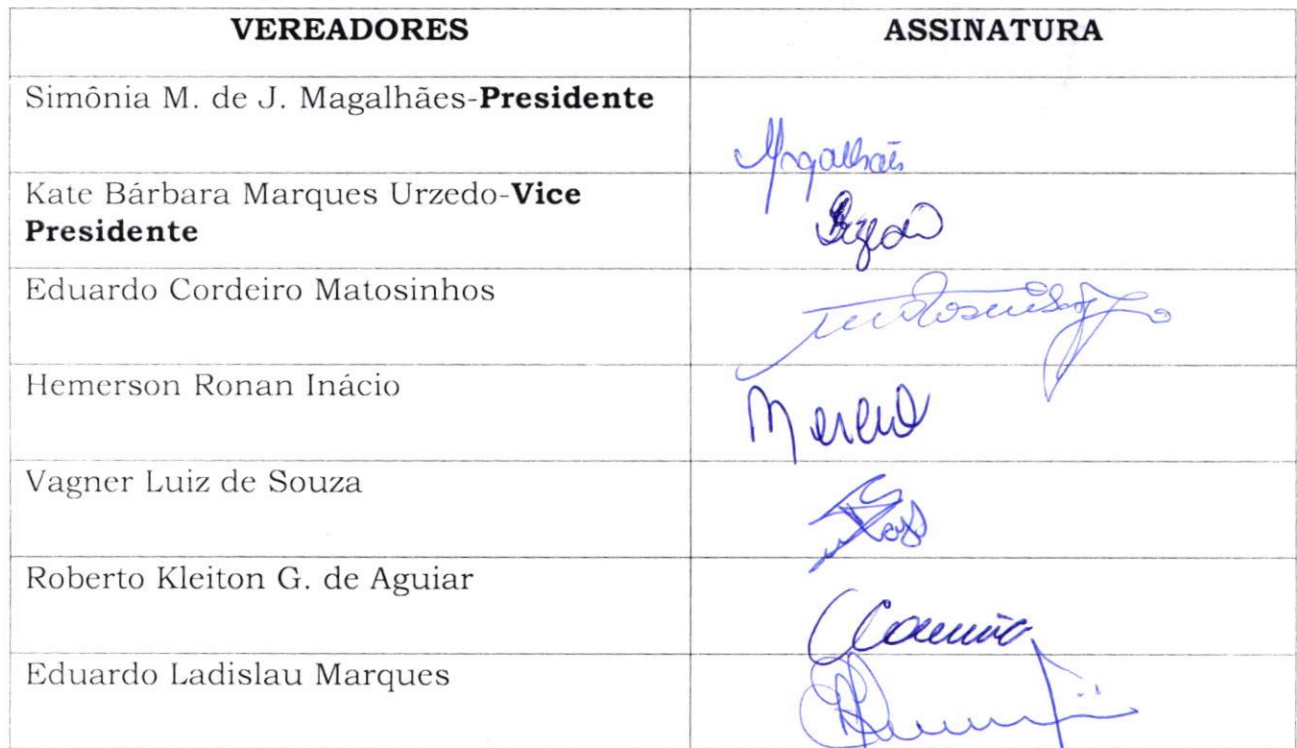 VEREADORES ASSINATURA
Simônia M. de J. Magalhães-Presidente
Magalhães
Kate Bárbara Marques Urzedo-Vice
Presidente
Eduardo Cordeiro Matosinhos
Hemerson Ronan Inácio
Vagner Luiz de Souza
Roberto Kleiton G. de Aguiar
Eduardo Ladislau Marques